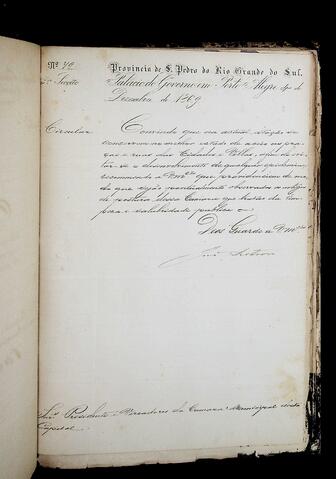 Nº 70
Provincia de S. Pedro do Rio Grande do Sul.
2ª Secção
Palacio do Governo em Porto Alegre, de
Dezembro de 1869
Circular
Convindo que na actual estação se
conserve no melhor estado de aceio as pra-
ças e ruas das Cidades e Villas, afim de evi-
tar-se o desenvolvimento de qualquer epidemia
recommendo a Vmces que providenciem de mo-
do que sejão pontualmente observados os artigos
de postura dessa Camara que tratão da lim-
peza e salubridade publica
Deos Guarde a Vmces
Snrs Presidente e Vereadores da Camara Municipal desta
Capital